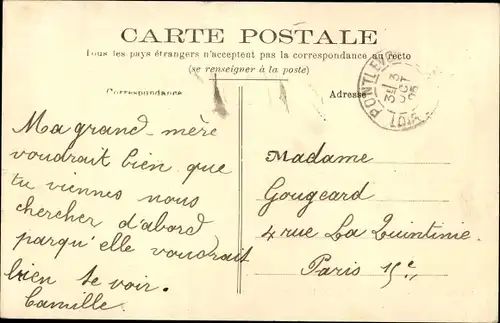 CARTE POSTALE
Tous les pays étrangers n'acceptent pas la correspondance au recto
(se renseigner à la poste)
Correspondance
Adresse
PONTLEV
31
OCT
Ma grand-mère
voudrait bien que
tu viennes nous
chercher d'abord
parqu'elle voudrait
bien te voir.
Camille.
Madame
Gougeard
4 rue La Quintinie
Paris 15e